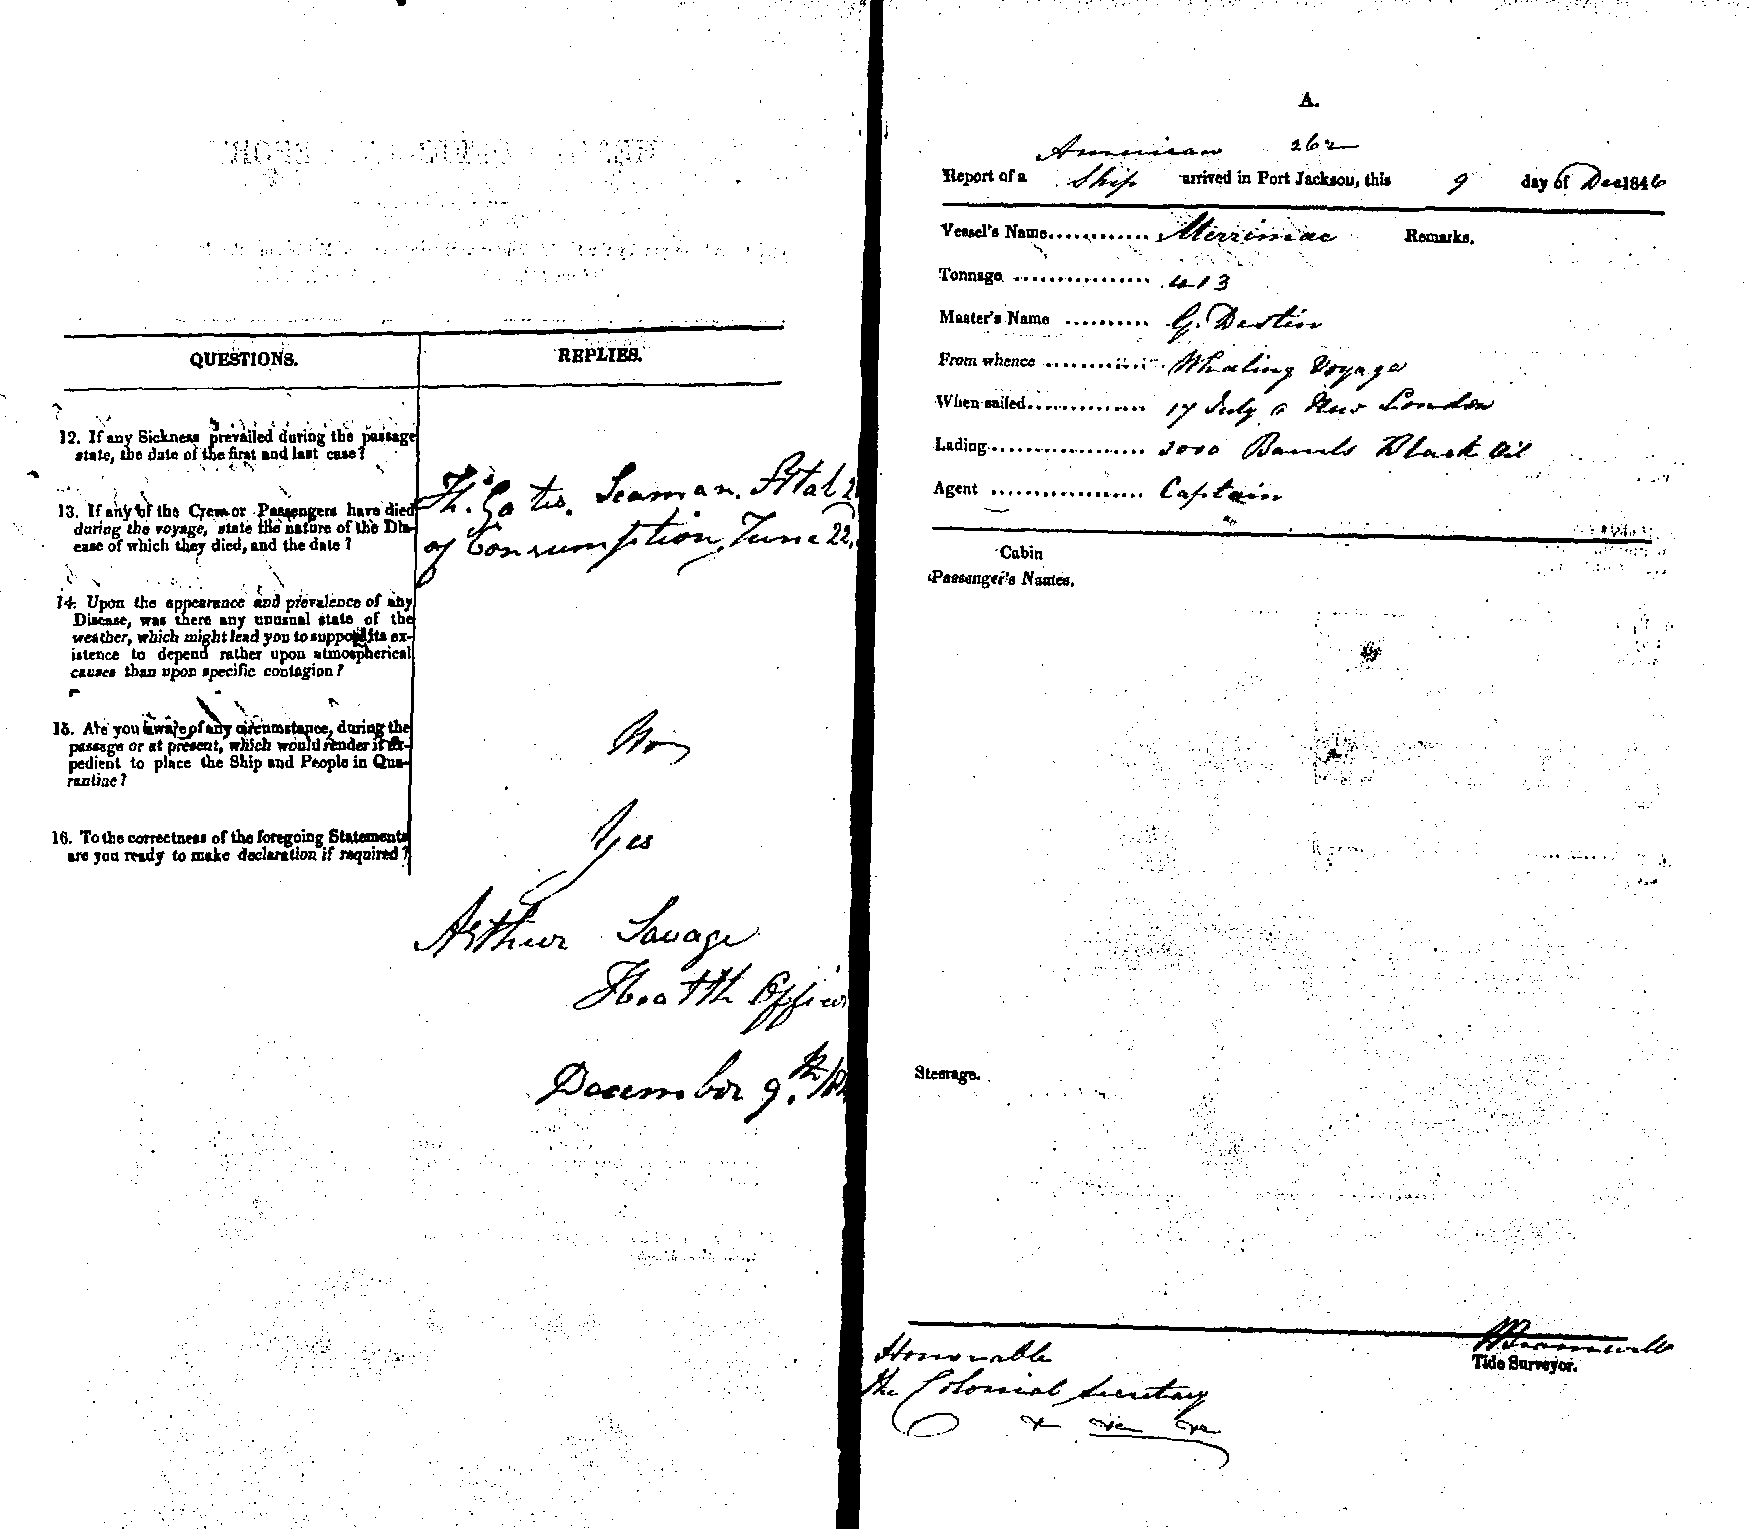 QUESTIONS.
REPLIES.
12. If any Sickness prevailed during the passage
state, the date of the first and last case?
13. If any of the Crew or Passengers have died
during the voyage, state the nature of the Dis-
ease of which they died, and the date?
Seaman.
of Consumption, June 22,
14. Upon the appearance and prevalence of any
Disease, was there any unusual state of the
weather, which might lead you to suppose its ex-
istence to depend rather upon atmospherical
causes than upon specific contagion?
15. Are you aware of any circumstance, during the
passage or at present, which would render it ex-
pedient to place the Ship and People in Qua-
rantine?
No
16. To the correctness of the foregoing Statements
are you ready to make declaration if required?
Yes
Arthur Savage
Health Officer
December 9th
A.
American 262
Report of a Ship arrived in Port Jackson, this 9 day of Dec 1846
Vessel's Name Merrimac Remarks.
Tonnage 413
Master's Name G. Destin
From whence Whaling Voyage
When sailed 17 July New London
Lading 3000 Barrels Black Oil
Agent Captain
Cabin
Passenger's Names.
Steerage.
Tide Surveyor.
Honorable
the Colonial Secretary